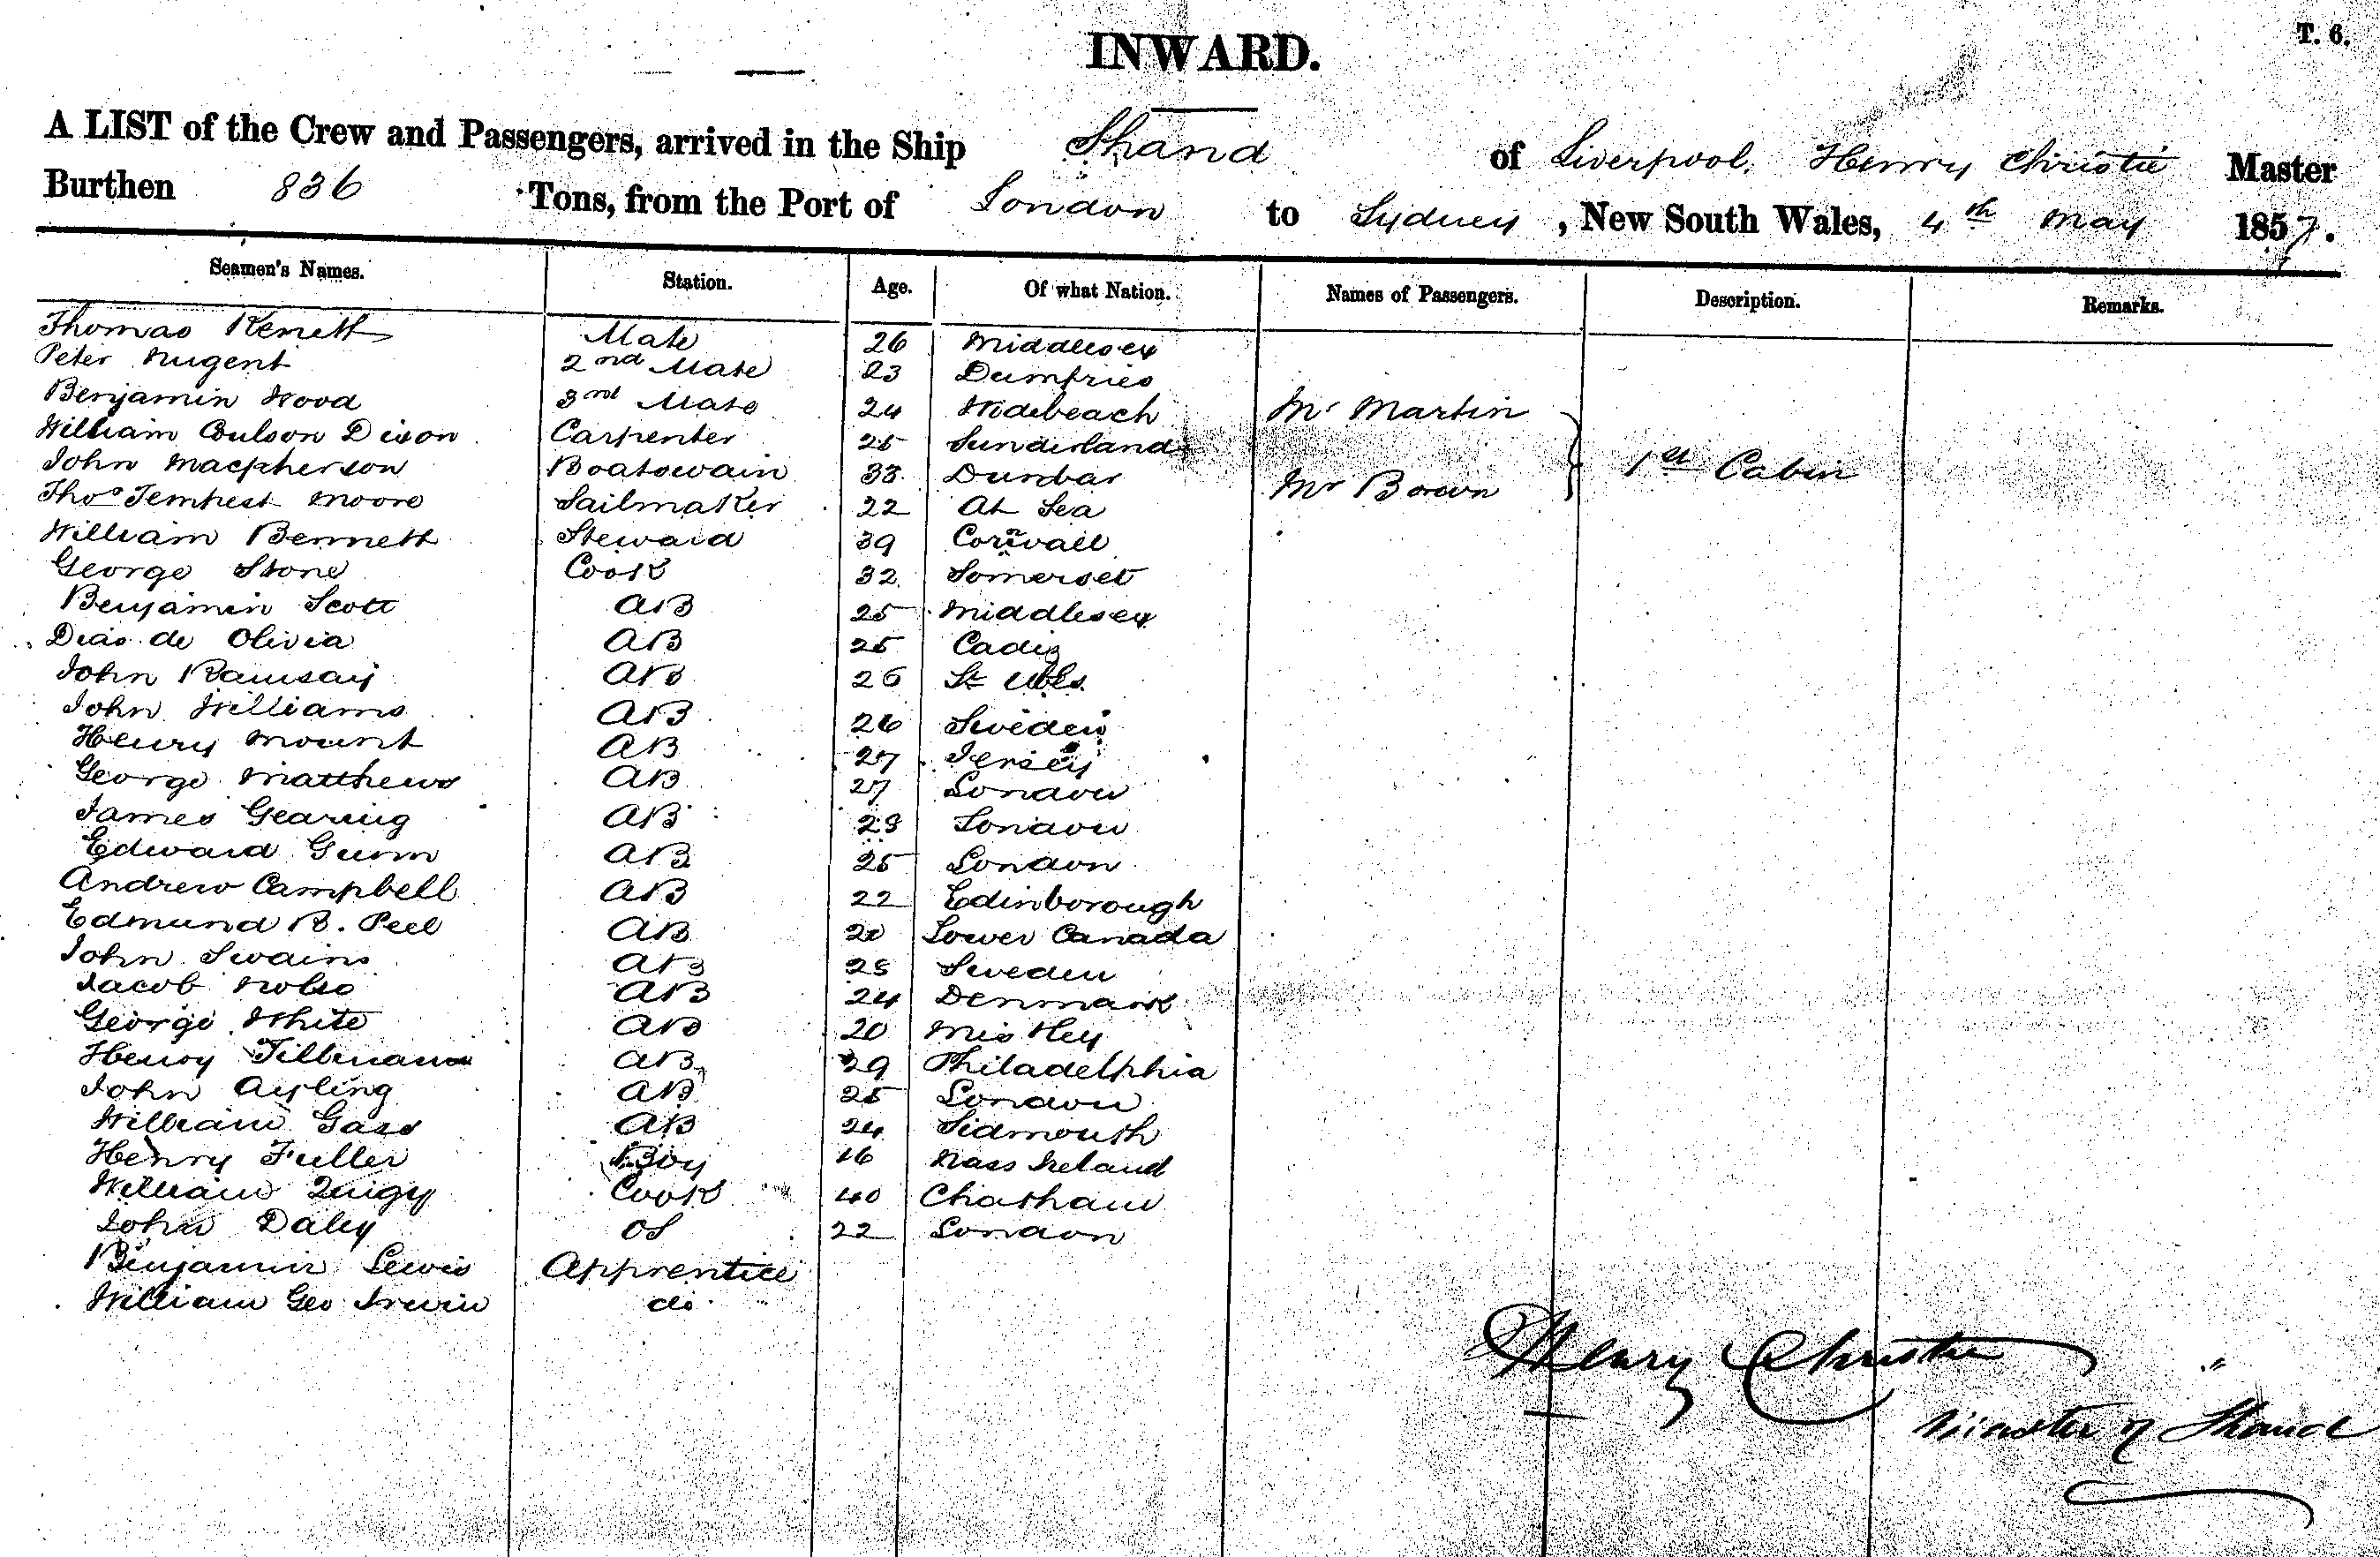 T. 6.
INWARD.
A LIST of the Crew and Passengers, arrived in the Ship Shand of Liverpool, Henry Christie Master
Burthen 836 Tons, from the Port of London to Sydney, New South Wales, 4th May 1857.
Seamen's Names. Station. Age. Of what Nation. Names of Passengers. Description. Remarks.
Thomas Kenett Mate 26 Middlesex
Peter Nugent 2nd Mate 23 Dumfries
Benjamin Wood 3rd Mate 24 Widebeach Mr Martin
William Coulson Dixon Carpenter 25 Sunderland
John Macpherson Boatswain 33 Dunbar 1st Cabin
Thos Tempest Moore Sailmaker 22 At Sea Mr Bown
William Bennett Steward 39 Cornwall
George Stone Cook 32 Somerset
Benjamin Scott AB 25 Middlesex
Dias de Olivia AB 25 Cadiz
John Ramsay AB 26 St Ubes
John Williams AB 26 Sweden
Henry Mount AB 27 Jersey
George Matthews AB 27 London
James Gearing AB 28 London
Edward Gunn AB 25 London
Andrew Campbell AB 22 Edinborough
Edmund R. Peel AB 20 Lower Canada
John Swains AB 25 Sweden
Jacob AB 24 Denmark
George White AB 20
Henry Tillman AB 29 Philadelphia
John Ayling AB 25 London
William Gass AB 24 Sidmouth
Henry Fuller Boy 16 Nass Ireland
William Quigy Cook 40 Chatham
John Daley OS 22 London
Benjamin Lewis Apprentice
William Geo Irwin do
Henry Christie
Master of Shand